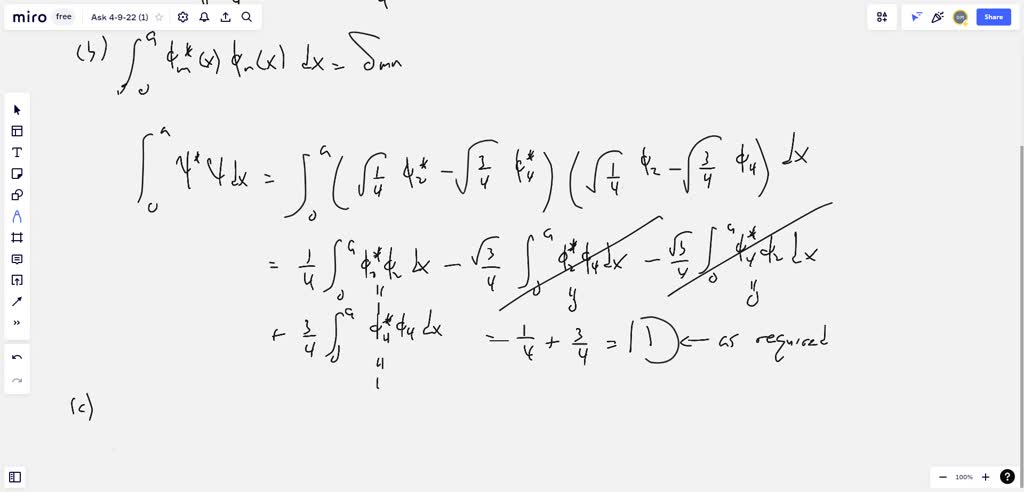 miro free Ask 4-9-22 (1) Share
(b) ∫₀ᵃ ϕₘ*(x) ϕₙ(x) dx = δₘₙ
∫₀ᵃ Ψ*Ψ dx = ∫₀ᵃ (√(1/4) ϕ₂* − √(3/4) ϕ₄*) (√(1/4) ϕ₂ − √(3/4) ϕ₄) dx
= 1/4 ∫₀ᵃ ϕ₂*ϕ₂ dx − √3/4 ∫₀ᵃ ϕ₂*ϕ₄ dx − √3/4 ∫₀ᵃ ϕ₄*ϕ₂ dx
+ 3/4 ∫₀ᵃ ϕ₄*ϕ₄ dx = 1/4 + 3/4 = 1 ← as required
1
(c)
100%